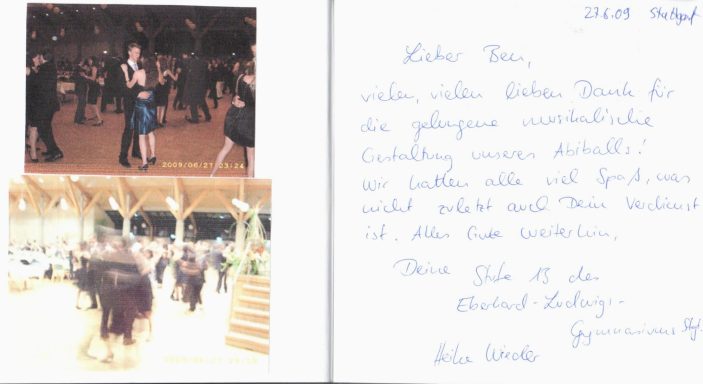 2009/06/27 03:24
27.6.09 Stuttgart
Lieber Ben,
vielen, vielen lieben Dank für
die gelungene musikalische
Gestaltung unseres Abiballs!
Wir hatten alle viel Spaß, was
nicht zuletzt auch Dein Verdienst
ist. Alles Gute weiterhin,
Deine Stufe 13 des
Eberhard-Ludwigs-
Gymnasiums Stgt.
Heike Wieder